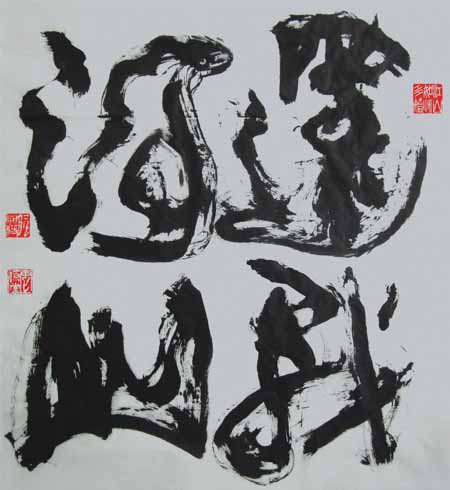 還我
河山